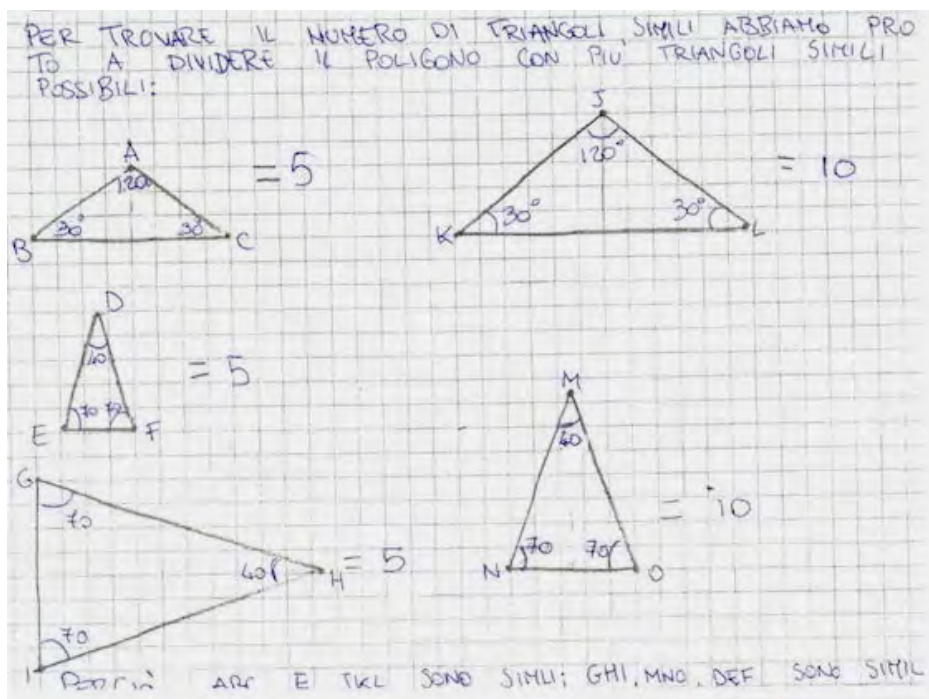 PER TROVARE IL NUMERO DI TRIANGOLI SIMILI ABBIAMO PRO
TO A DIVIDERE IL POLIGONO CON PIU TRIANGOLI SIMILI
POSSIBILI:
A
120°
= 5
B
30°
30°
C
J
120°
= 10
K
30°
30°
L
D
40
= 5
E
70
70
F
M
40
= 10
N
70
70
O
G
70
40
H
= 5
70
I
ABC E JKL SONO SIMILI; GHI, MNO, DEF SONO SIMIL